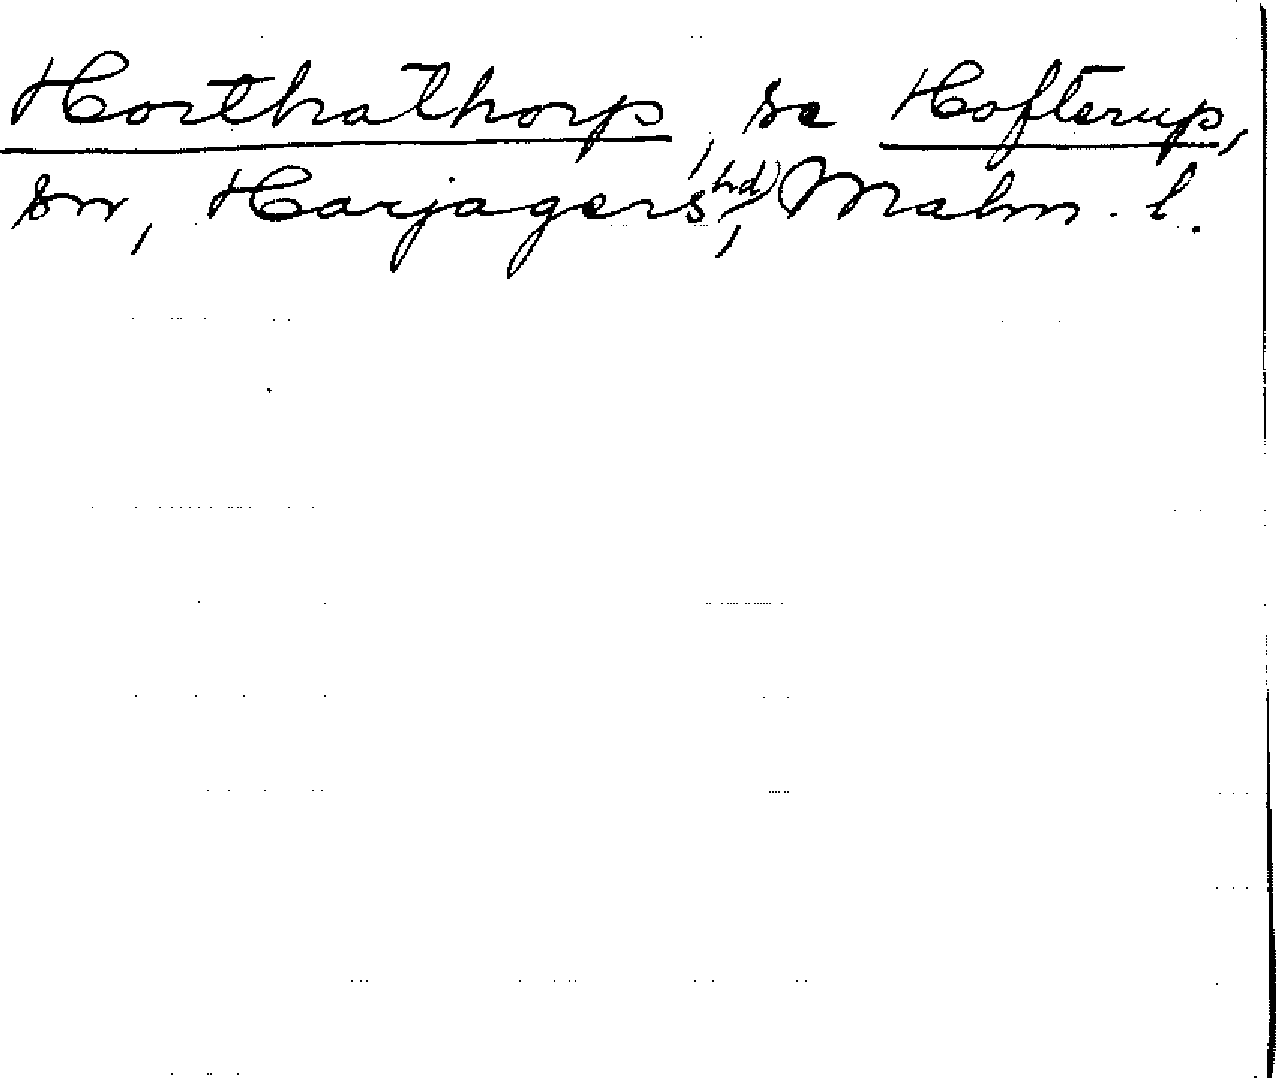 Horthathorp, se Hofterup,
sn, Harjagers hd, Malm. l.